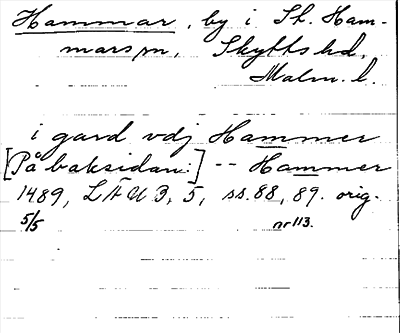 Hammar, by i St. Ham-
mars sn, Skytts hd,
Malm. l.
i gard vdj Hammer
[På baksidan:] -- Hammer
1489, LÄU 3, 5, ss. 88, 89. orig.
5/5 nr 113.